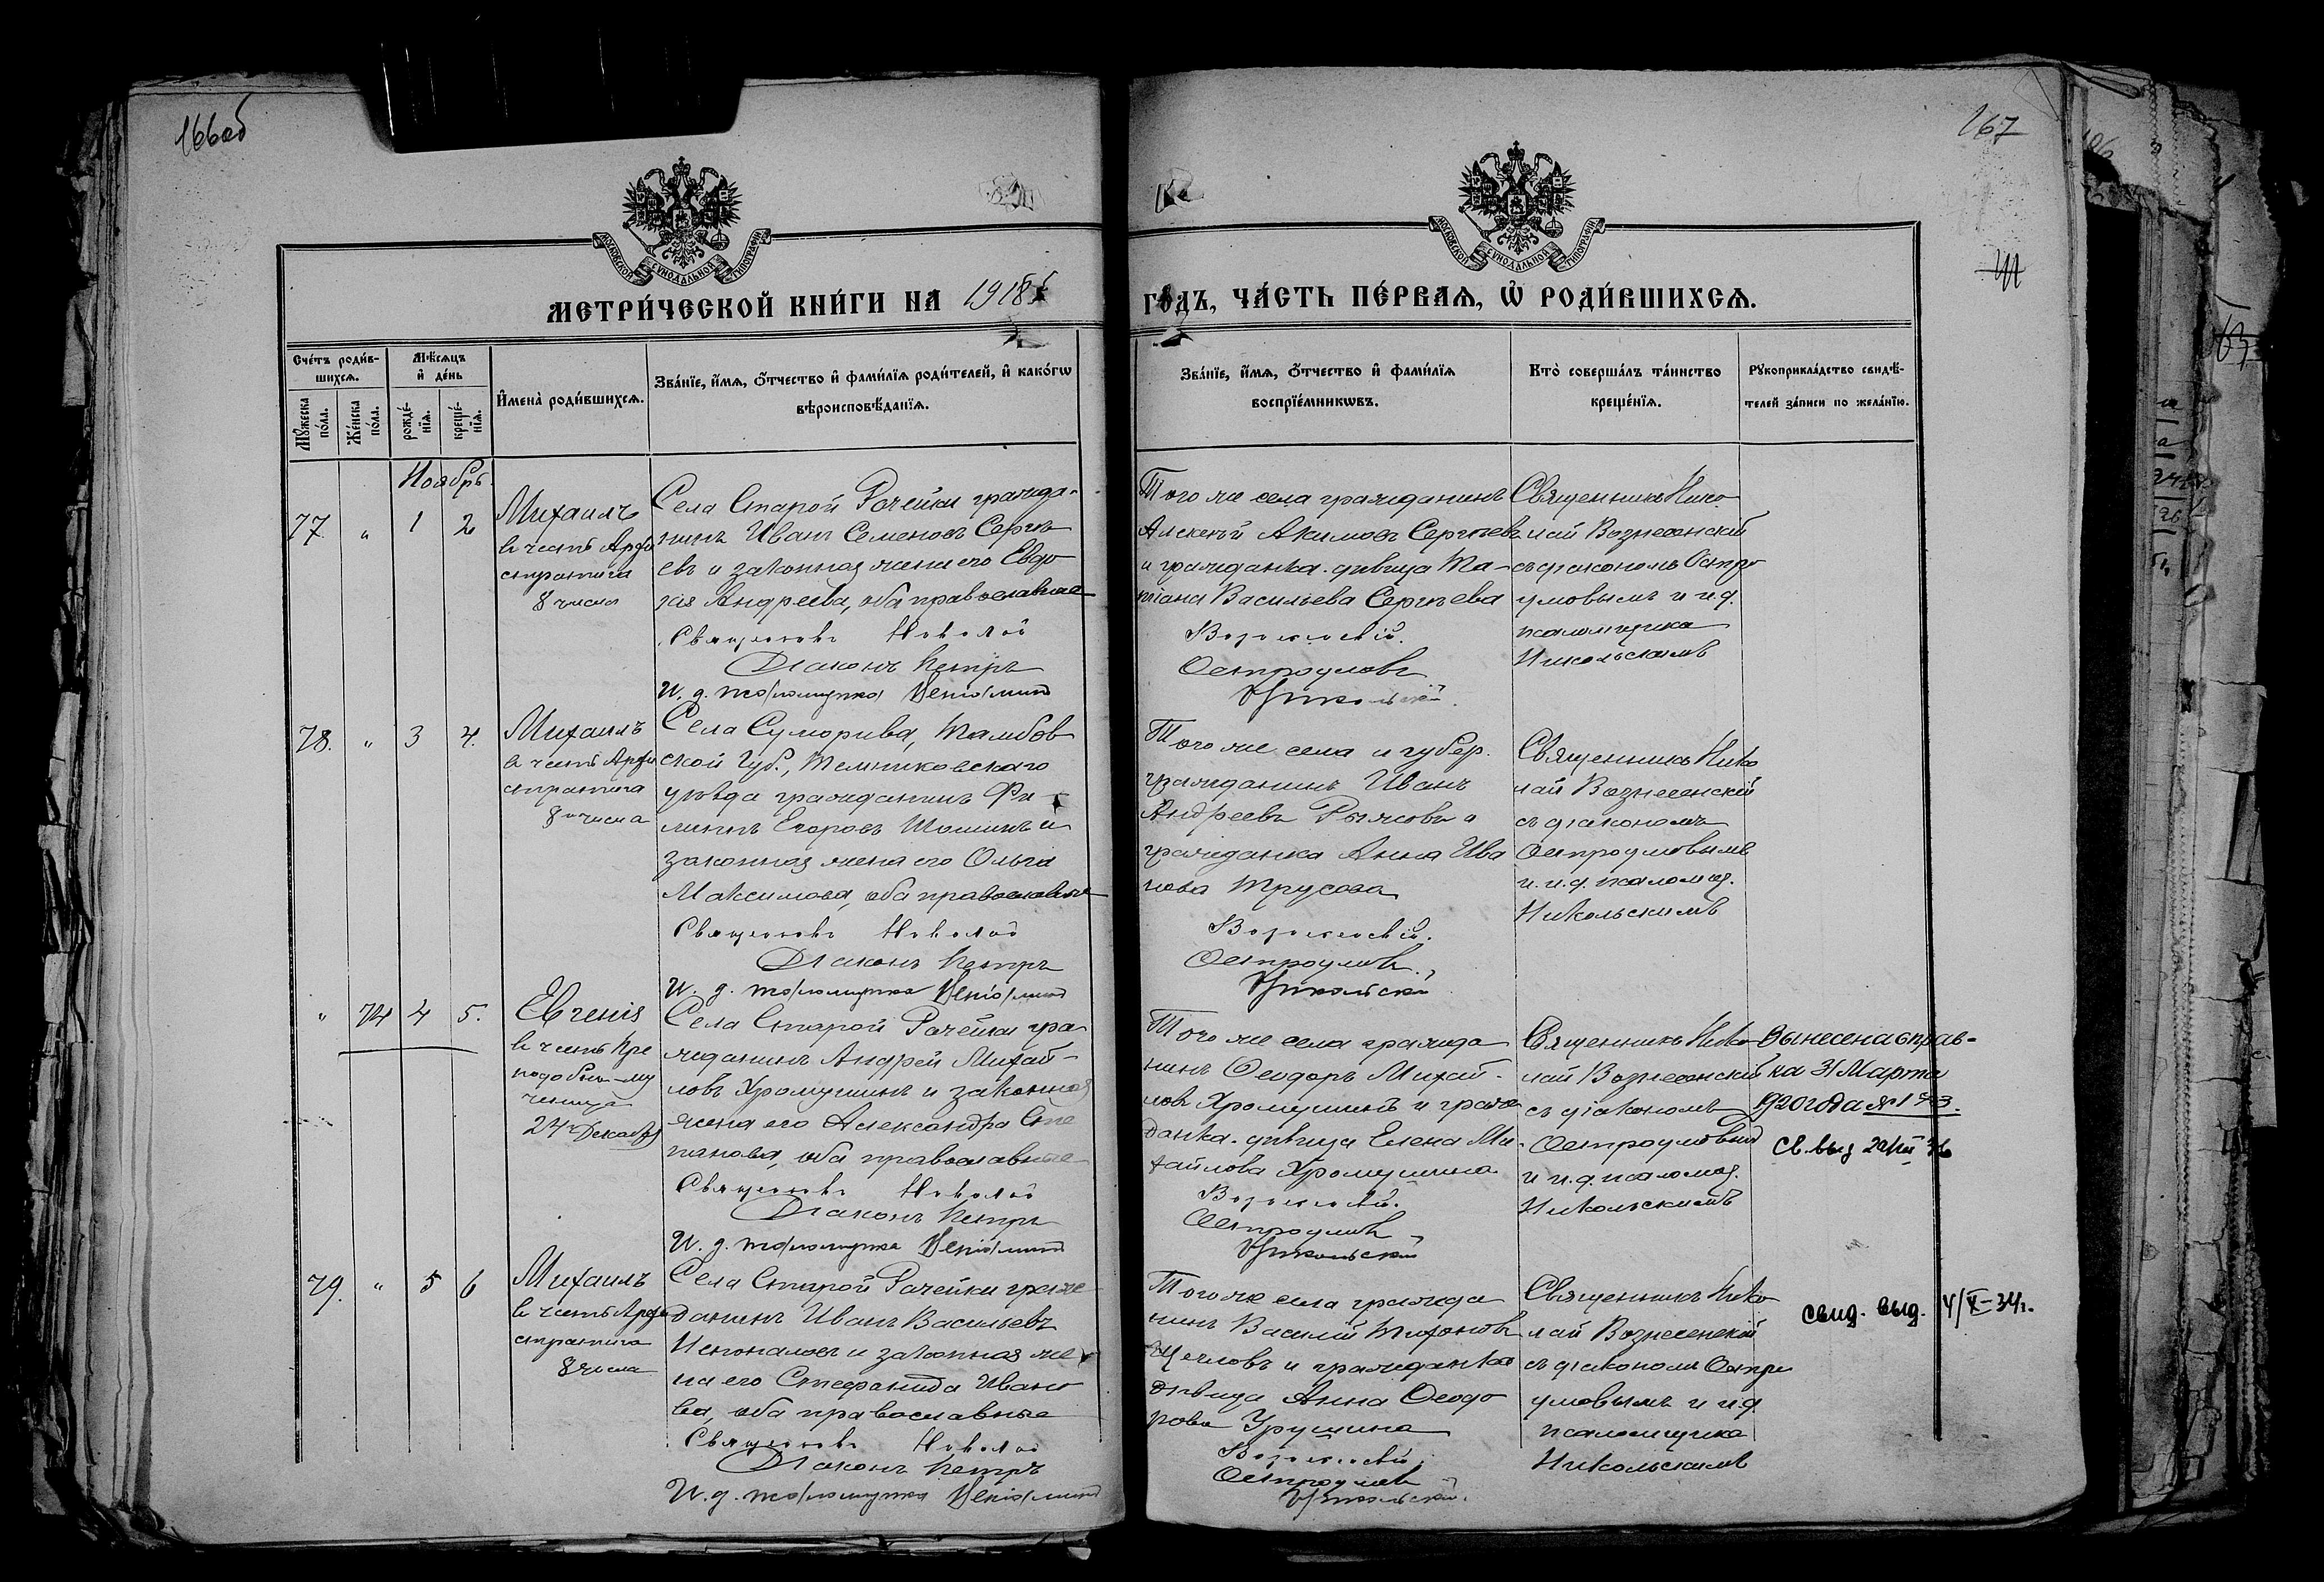 166 об
167
МОСКОВСКОЙ СѴНОДАЛЬНОЙ ТИПОГРАФІИ
МОСКОВСКОЙ СѴНОДАЛЬНОЙ ТИПОГРАФІИ
МЕТРИ́ЧЕСКОЙ КНИ́ГИ НА 1918
ГО́ДЪ, ЧА́СТЬ ПЕ́РВАѦ, Ѡ РОДИ́ВШИХСѦ.
Сче́тъ роди́в-
шихсѧ.
Мꙋ́жеска по́ла.
Же́нска по́ла.
Мѣ́сѧцъ
и҆ де́нь
рожде́-
нїѧ.
креще́-
нїѧ.
И҆мена̀ роди́вшихсѧ.
Зва́нїе, и҆́мѧ, ѻ҆́тчество и҆ фами́лїѧ роди́телей, и҆ како́гѡ
вѣроисповѣ́данїѧ.
Зва́нїе, и҆́мѧ, ѻ҆́тчество и҆ фами́лїѧ
воспрїе́мникѡвъ.
Кто̀ соверша́лъ та́инство
креще́нїѧ.
Рꙋкоприкла́дство свидѣ́-
телей за́писи по жела́нїю.
Ноябрь
77 " 1 2
Михаилъ
в честь Архи
стратига
8 числа
Села Старой Рачейки гражда-
нинъ Иванъ Семеновъ Сергѣ
евъ и законная жена его Евдо
кія Андреева, оба православные
Священникъ Николай
Діаконъ Петръ
И. д. псаломщика Веніаминъ
Того же села гражданинъ
Алексѣй Акимовъ Сергѣевъ
и гражданка-дѣвица Та-
тіана Васильева Сергѣева
Вознесенскій.
Остроумовъ
Никольскій.
Священникъ Нико
лай Вознесенскій
съ діакономъ Остро
умовымъ и и.д.
псаломщика
Никольскимъ
78. " 3 4.
Михаилъ
в честь Архи
стратига
8 числа
Села Сумарива, Тамбов
ской Губ., Темниковскаго
уѣзда гражданинъ Фи-
липпъ Егоровъ Шошинъ и
законная жена его Ольга
Максимова, оба православные
Священникъ Николай
Діаконъ Петръ
И. д. псаломщика Веніаминъ
Того же села и губер.
гражданинъ Иванъ
Андреевъ Рыжовъ и
гражданка Анна Ива
нова Трусова
Вознесенскій.
Остроумовъ.
Никольскій
Священникъ Нико
лай Вознесенскій
съ діакономъ
Остроумовымъ
и и.д. псаломщ.
Никольскимъ
" 74 4 5.
Евгенія
в честь Пре
подобно-му
ченица
24 Декабря
Села Старой Рачейки гра
жданинъ Андрей Михай-
ловъ Хромушинъ и законная
жена его Александра Сте
панова, оба православные
Священникъ Николай
Діаконъ Петръ
И. д. псаломщика Веніаминъ
Того же села гражда
нинъ Ѳеодоръ Михай-
ловъ Хромушинъ и граж
данка-дѣвица Елена Ми-
хайлова Хромушина
Вознесенскій.
Остроумовъ
Никольскій
Священникъ Нико
лай Вознесенскій
съ діакономъ
Остроумовымъ
и и.д. псаломщ.
Никольскимъ
Вынесена справ-
ка 31 Марта
1920 года
Св. выд
79. " 5 6
Михаилъ
в честь Архи
стратига
8 числа
Села Старой Рачейки граж
данинъ Иванъ Васильевъ
и законная же
на его Стефанида Ивано
ва, оба православные
Священникъ Николай
Діаконъ Петръ
И. д. псаломщика Веніаминъ
Того же села гражда
нинъ Василій Тихоновъ
Щегловъ и гражданка
дѣвица Анна Ѳеодо
рова Урушина
Вознесенскій.
Остроумовъ
Никольскій.
Священникъ Нико
лай Вознесенскій
съ діакономъ Остро
умовымъ и и.д.
псаломщика
Никольскимъ
свид. выд. 4/X-34г.